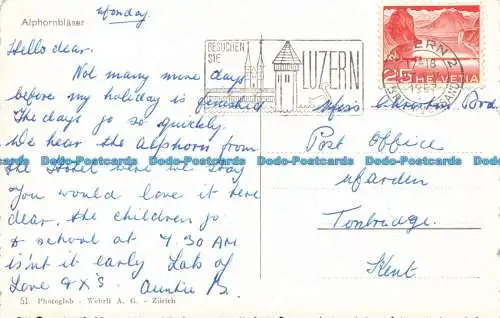 Alphornbläser
Monday
Hello dear.
Not many more days
before my holiday is finished
The days go so quickly.
We hear the Alphorn from
the Hotel were we stay
You would love it here
dear, the children go
to school at 7.30 AM
isn't it early Lots of
Love & X's. Auntie B.
51 Photoglob - Wehrli A. G. - Zürich
BESUCHEN
SIE
LUZERN
LUZERN 2
25 HELVETIA
Miss
Post Office
Marden
Tonbridge.
Kent
Dodo-Postcards Dodo-Postcards Dodo-Postcards Dodo-Postcards Dodo-Postcards